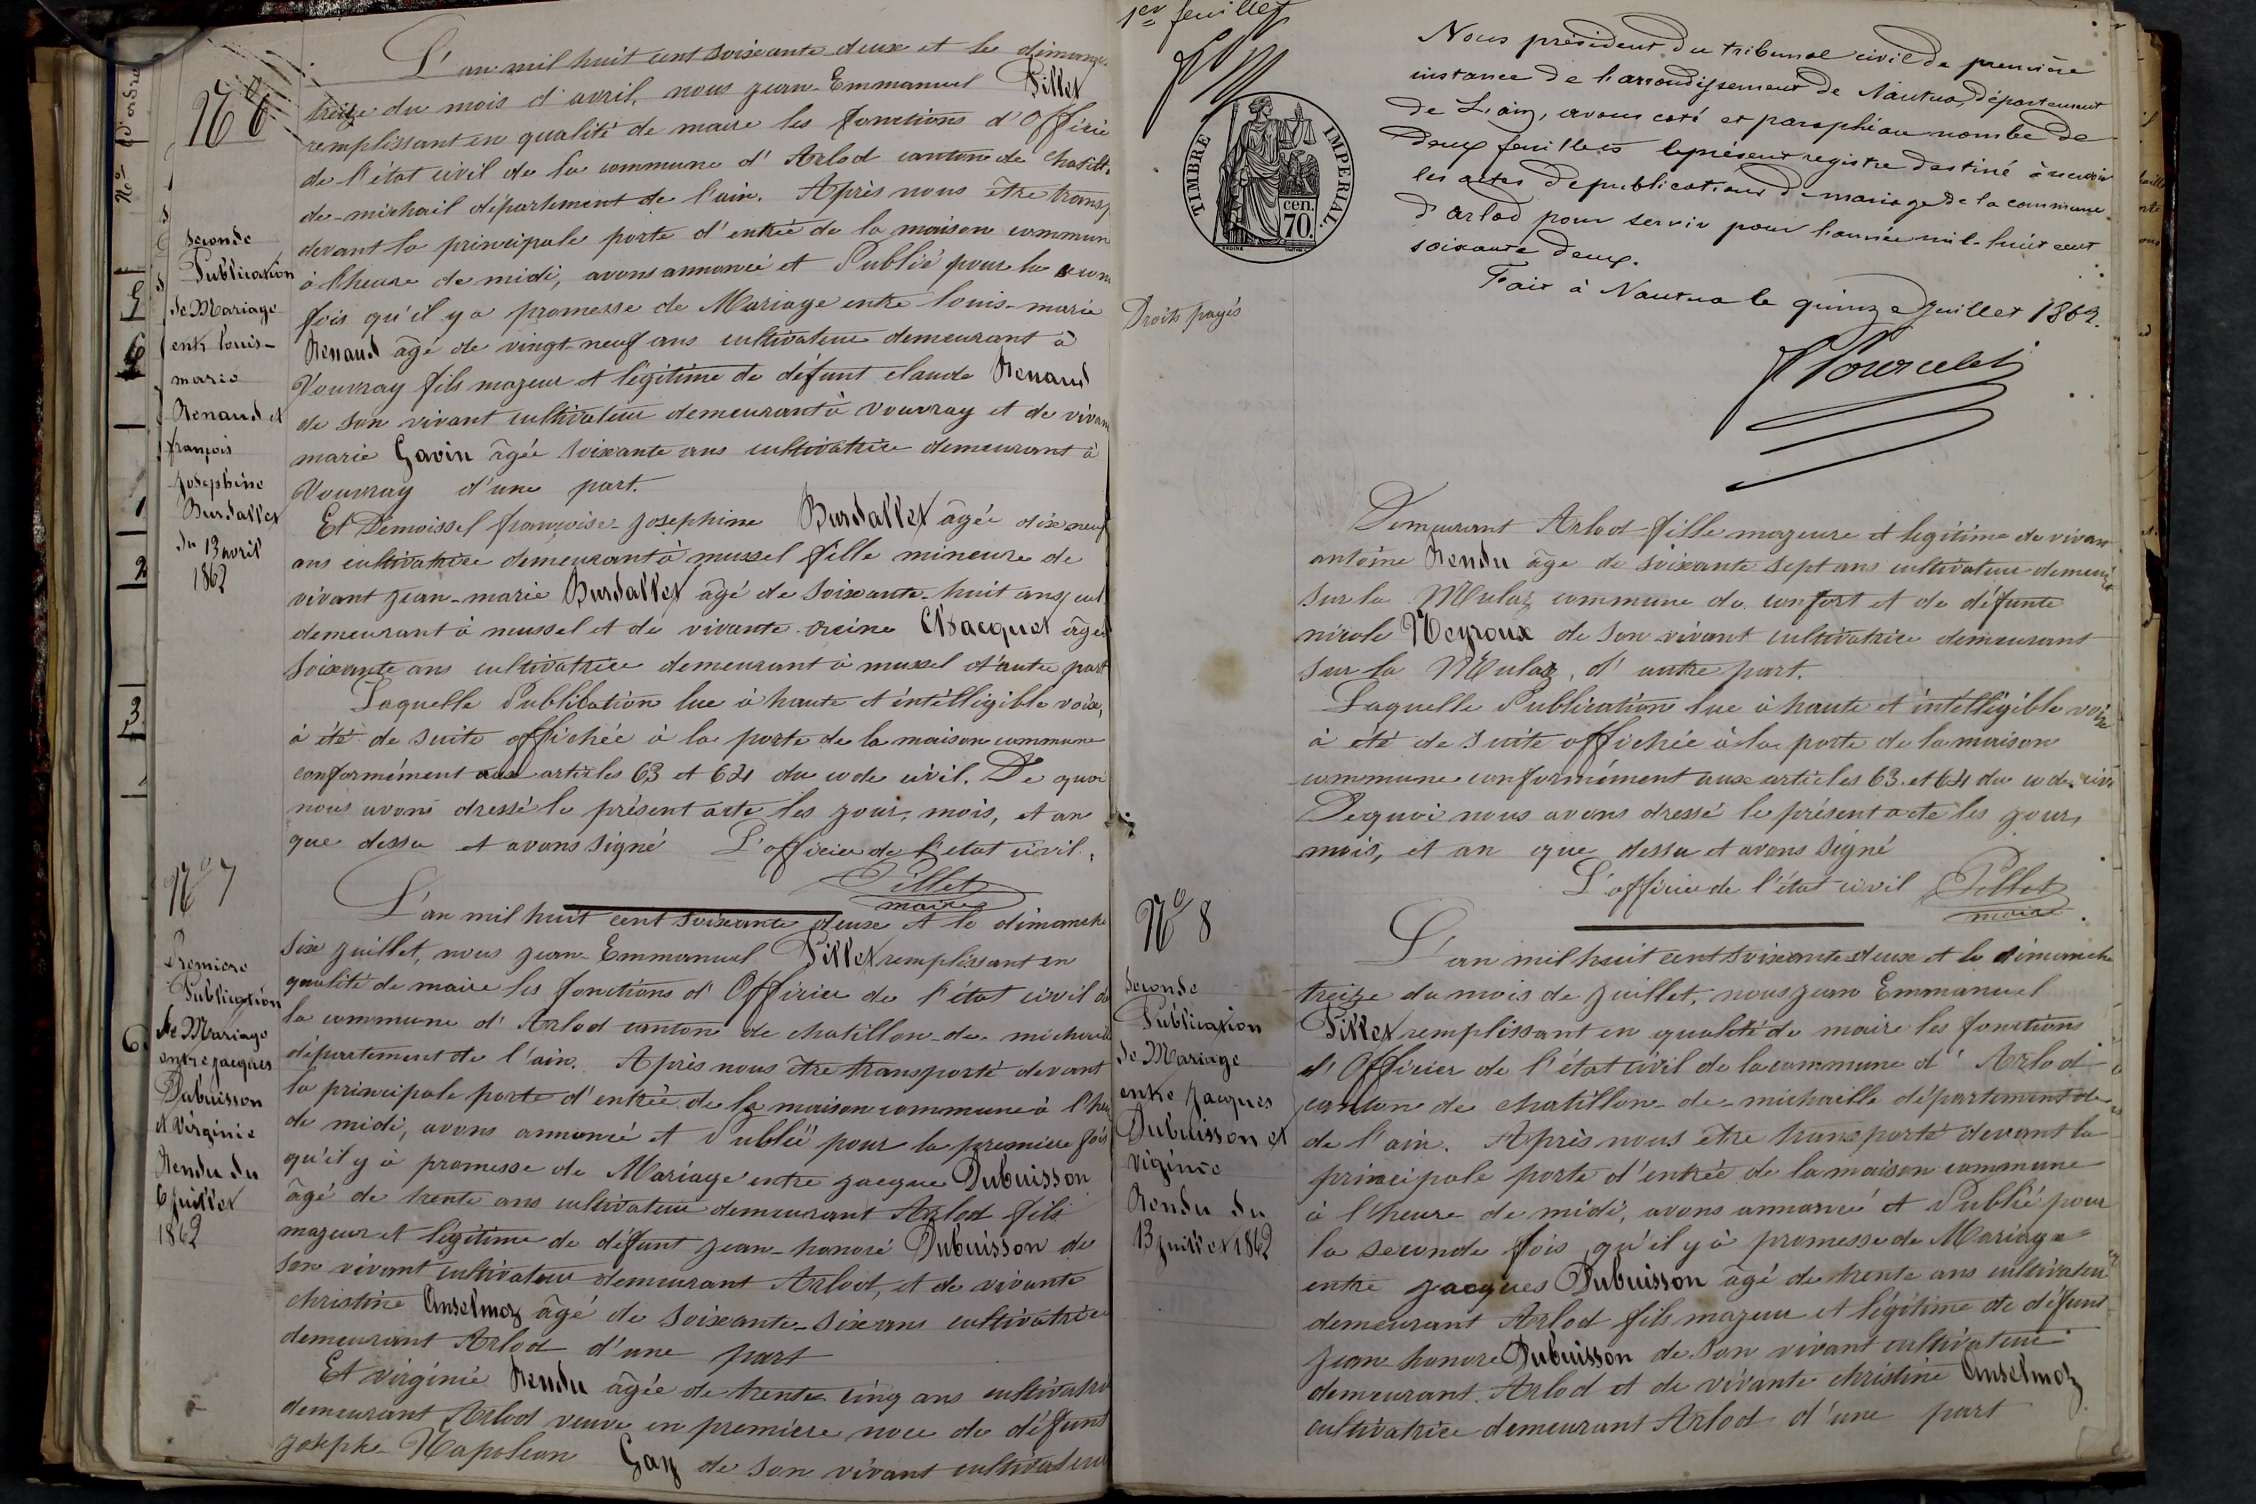 Nos d'ordre
No 6
Seconde
Publication
de Mariage
entre louis-
marie
Renaud et
françois
josephine
Burdallet
du 13 avril
1862
L'an mil huit cent soixante deux et le dimanche
treize du mois d'avril, nous jean-Emmanuel Pillet
remplissant en qualité de maire les fonctions d'Officier
de l'état civil de la commune d'Arlod canton de chatill.
de-michail département de l'ain. Après nous être transp
devant la principale porte d'entrée de la maison commun
à l'heure de midi, avons annoncé et Publié pour la secon
fois qu'il y a promesse de Mariage entre louis-marie
Renaud âgé de vingt-neuf ans cultivateur demeurant à
Vouvray fils majeur et légitime de défunt claude Renaud
de son vivant cultivateur demeurant à vouvray et de vivan
marie Gavin âgée soixante ans cultivatrice demeurant à
Vouvray d'une part.
Et Demoissel françoise-josephine Burdallet âgée dix neuf
ans cultivatrice demeurant à mussel fille mineure de
vivant jean-marie Burdallet âgé de soixante-huit ans, cul
demeurant à mussel et de vivante reine Chacquet âgée
soixante ans cultivatrice demeurant à mussel d'autre part
Laquelle Publication lue à haute et intélligible voix,
à été de suite affichée à la porte de la maison commune
conformément aux articles 63 et 64 du code civil. De quoi
nous avons dressé le présent acte les jour, mois, et an
que dessu et avons signé L'officier de l'etat civil,
Pillet
maire
No 7
Premiere
Publication
de Mariage
entre jacques
Dubuisson
et virginie
Rendu du
6 juillet
1862
L'an mil huit cent soixante deux et le dimanche
six juillet, nous jean-Emmanuel Pillet remplissant en
qualité de maire les fonctions d'Officier de l'état civil de
la commune d'Arlod canton de chatillon-de-michaille
département de l'ain. Après nous être transporté devant
la principale porte d'entrée de la maison commune à l'heu
de midi, avons annoncé et Publié pour la premiere fois
qu'il y à promesse de Mariage entre jacque Dubuisson
âgé de trente ans cultivateur demeurant Arlod fils
majeur et légitime de défunt jean-honoré Dubuisson de
son vivant cultivateur demeurant Arlod, et de vivante
christine Anselmoz âgé de soixante-six ans cultivatrice
demeurant Arlod d'une part
Et virginie Rendu âgée de trente cinq ans cultivatri
demeurant Arlod veuve en premiere noce de défunt
josephe Napoleon Gay de son vivant cultivateur
1er feuillet
TIMBRE IMPERIAL.
cen.
70.
Droits payés
Nous président du tribunal civil de première
instance de l'arrondissement de Nantua, département
de L'ain, avons coté et paraphé au nombre de
deux feuillets le présent registre destiné à recevoir
les actes de publications de mariage de la commune
d'arlod pour servir pour l'année mil-huit cent
soixante deux.
Fait à Nantua le quinze Juillet 1862.
Demeurant Arlod fille majeure et legitime de vivan
antoine Rendu âge de soixante sept ans cultivateur demeur
sur la Mulaz commune de confort et de défunte
nicole Neyroux de son vivant cultivatrice demeurant
sur la Mulaz, d'autre part.
Laquelle Publication lue à haute et intélligible voix
à été de suite affichée à la porte de la maison
commune conformément aux articles 63 et 64 du code civi
De quoi nous avons dressé le présent acte les jour,
mois, et an que dessu et avons signé
L'officier de l'état civil Pillet
maire
No 8
Seconde
Publication
de Mariage
entre jacques
Dubuisson et
viginie
Rendu du
13 juillet 1862
L'an mil huit cent soixante deux et le dimanche
treize du mois de juillet, nous jean Emmanuel
Pillet remplissant en qualité de maire les fonctions
d'Officier de l'état civil de la commune d'Arlod
canton de chatillon-de-michaille département de
de l'ain. Après nous être transporté devant la
principale porte d'entrée de la maison commune
à l'heure de midi, avons annoncé et Publié pour
la seconde fois qu'il y à promesse de Mariage
entre jacques Dubuisson âgé de trente ans cultivateu
demeurant Arlod fils majeur et légitime de défunt
jean honore Dubuisson de son vivant cultivateur
demeurant Arlod et de vivante christine Anselmoz
cultivatrice demeurant Arlod d'une part